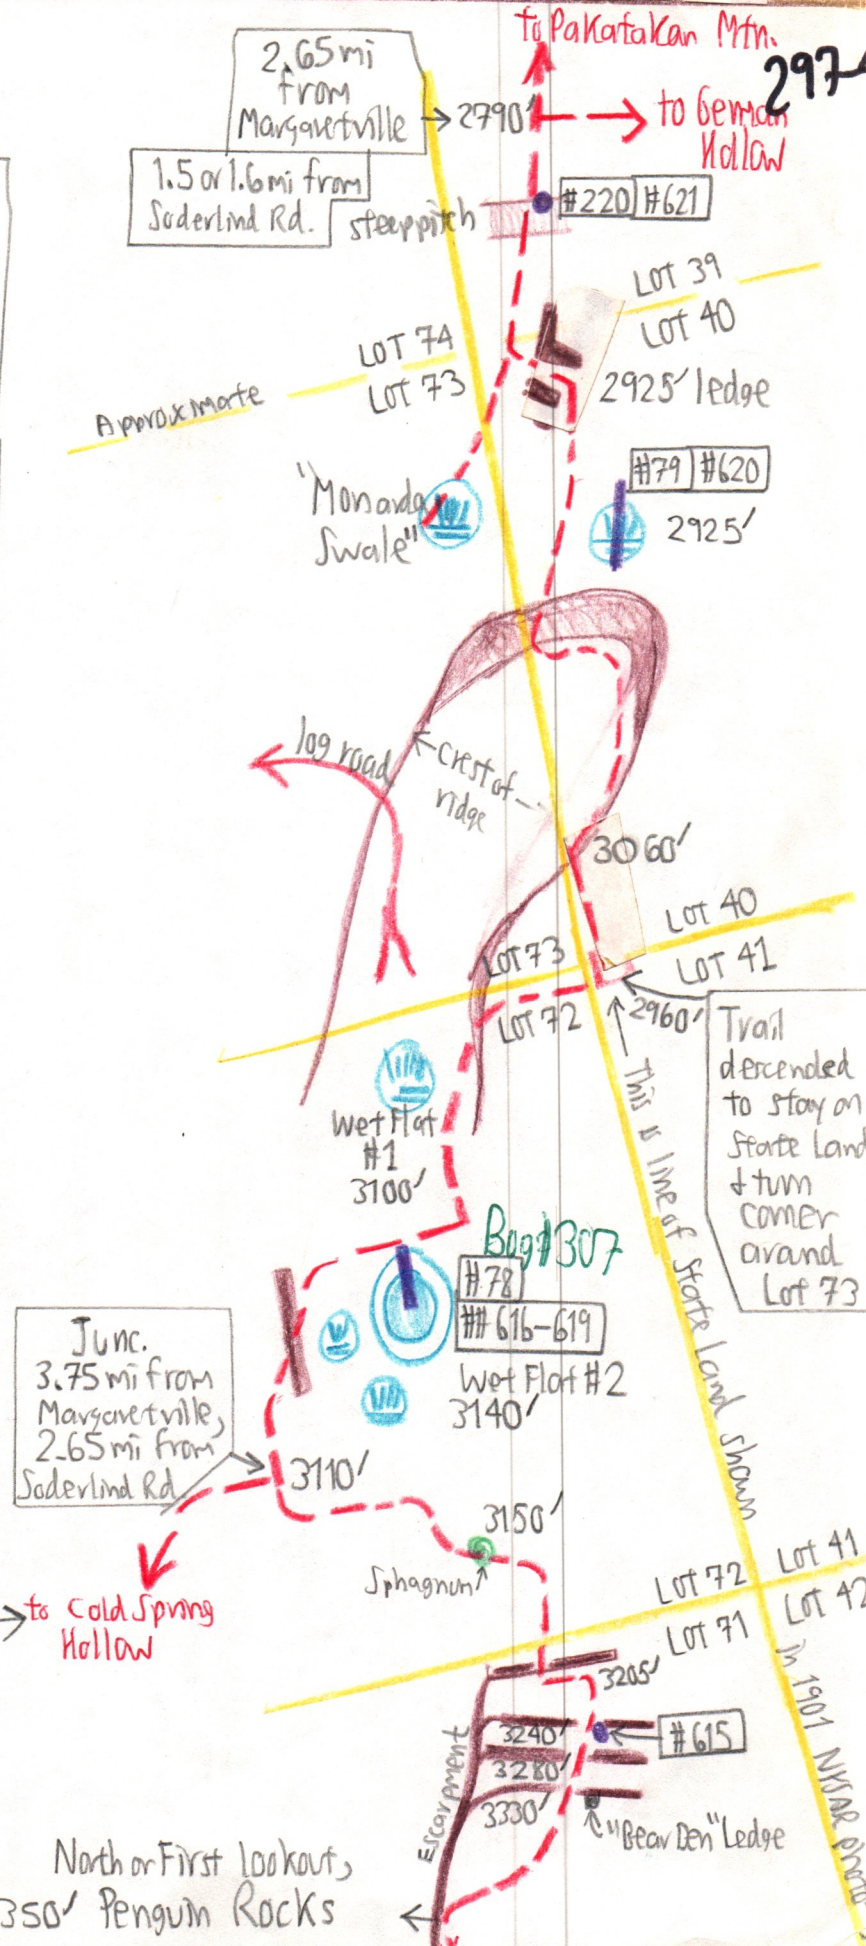 to Pakatakan Mtn.
297
2.65mi
from
Margaretville
2790'
to German
Hollow
1.5 or 1.6mi from
Soderlind Rd.
steep pitch
#220 #621
LOT 39
LOT 40
LOT 74
LOT 73
Approximate
2925' ledge
#79 #620
2925'
"Monarda
Swale"
log road
Crest of
ridge
3060'
LOT 40
LOT 41
LOT 73
LOT 72
2960'
Trail
descended
to stay on
State Land
& turn
corner
around
Lot 73
This is line of State Land shown
in 1901 NYSAR photo
Wet Flat
#1
3100'
Bog #307
#78
## 616-619
Wet Flat #2
3140'
Junc.
3.75 mi from
Margaretville,
2.65 mi from
Soderlind Rd
3110'
3150'
Sphagnum
to Cold Spring
Hollow
LOT 72
LOT 41
LOT 71
LOT 42
3205'
3240'
#615
3280'
3330'
Escarpment
"Bear Den" Ledge
North or First lookout,
350' Penguin Rocks